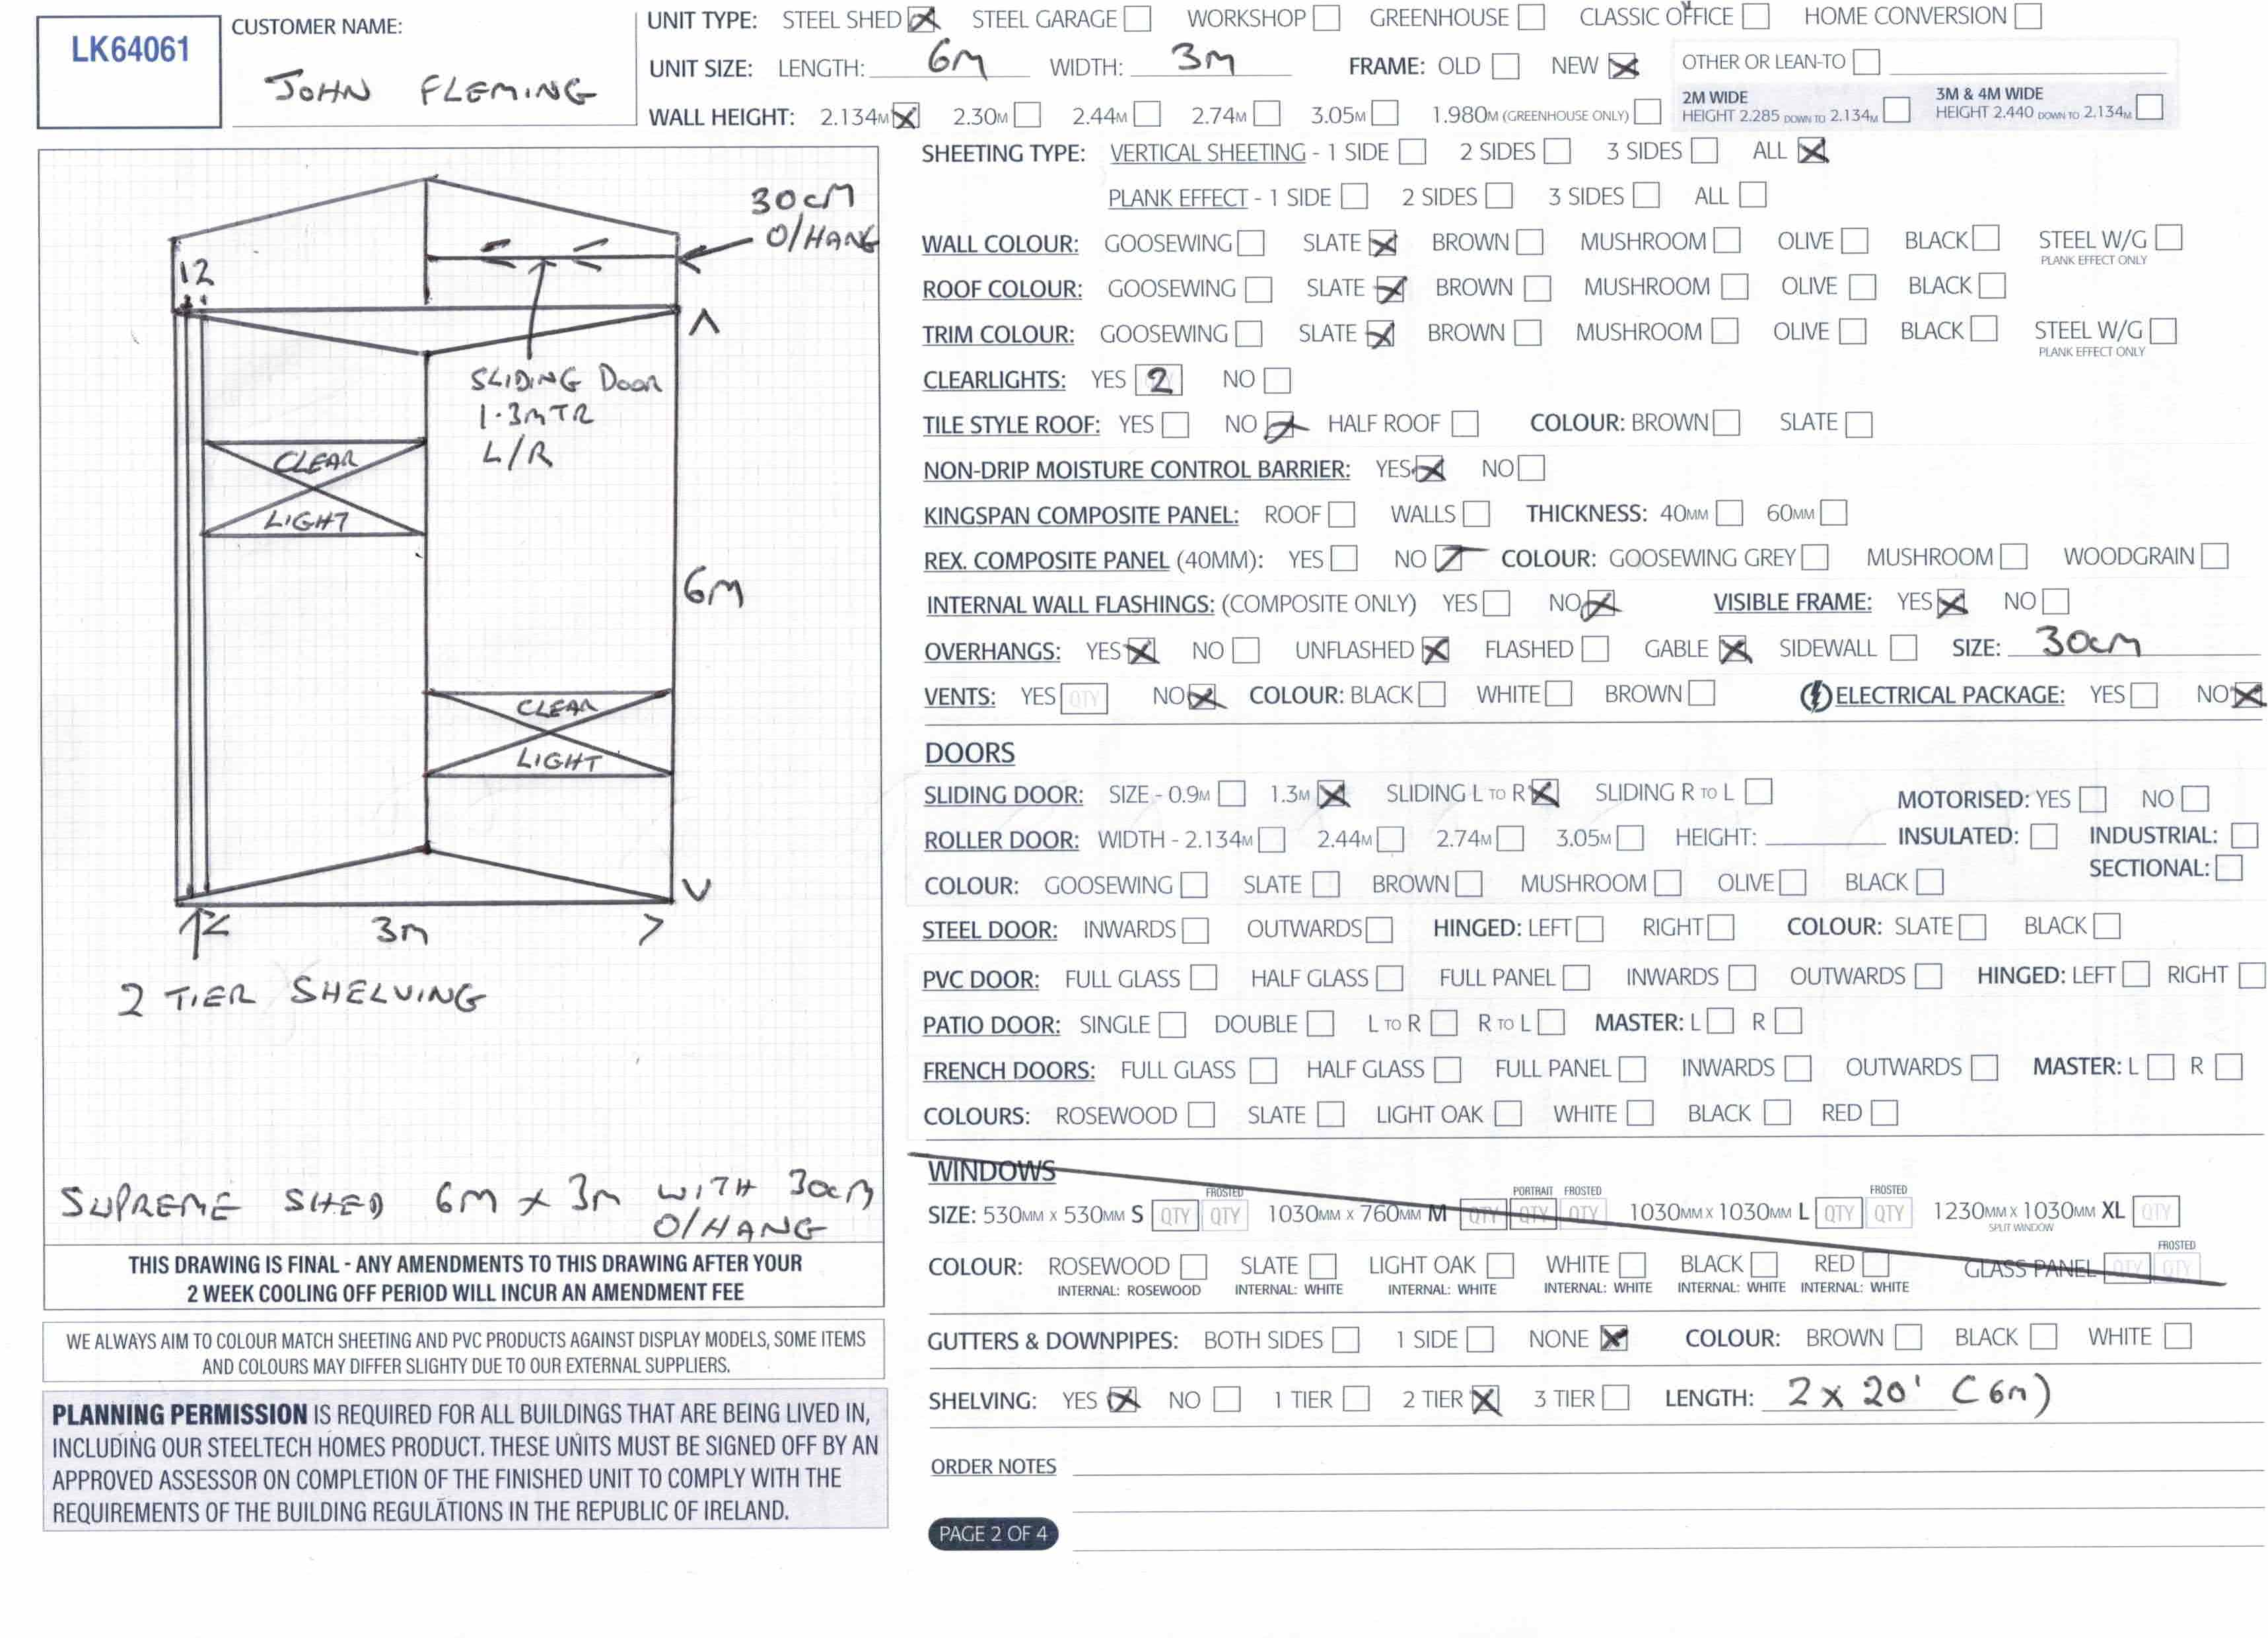 LK64061
CUSTOMER NAME:
JOHN FLEMING
UNIT TYPE: STEEL SHED STEEL GARAGE WORKSHOP GREENHOUSE CLASSIC OFFICE HOME CONVERSION
UNIT SIZE: LENGTH: 6M WIDTH: 3M FRAME: OLD NEW OTHER OR LEAN-TO
WALL HEIGHT: 2.134M 2.30M 2.44M 2.74M 3.05M 1.980M (GREENHOUSE ONLY)
2M WIDE
HEIGHT 2.285 DOWN TO 2.134M
3M & 4M WIDE
HEIGHT 2.440 DOWN TO 2.134M
30cM
O/HANG
12
SLIDING DOOR
1.3MTR
L/R
CLEAR
LIGHT
6M
CLEAR
LIGHT
3M
2 TIER SHELVING
SUPREME SHED 6M x 3M WITH 30cM
O/HANG
THIS DRAWING IS FINAL - ANY AMENDMENTS TO THIS DRAWING AFTER YOUR
2 WEEK COOLING OFF PERIOD WILL INCUR AN AMENDMENT FEE
WE ALWAYS AIM TO COLOUR MATCH SHEETING AND PVC PRODUCTS AGAINST DISPLAY MODELS, SOME ITEMS
AND COLOURS MAY DIFFER SLIGHTY DUE TO OUR EXTERNAL SUPPLIERS.
PLANNING PERMISSION IS REQUIRED FOR ALL BUILDINGS THAT ARE BEING LIVED IN,
INCLUDING OUR STEELTECH HOMES PRODUCT. THESE UNITS MUST BE SIGNED OFF BY AN
APPROVED ASSESSOR ON COMPLETION OF THE FINISHED UNIT TO COMPLY WITH THE
REQUIREMENTS OF THE BUILDING REGULATIONS IN THE REPUBLIC OF IRELAND.
SHEETING TYPE: VERTICAL SHEETING - 1 SIDE 2 SIDES 3 SIDES ALL
PLANK EFFECT - 1 SIDE 2 SIDES 3 SIDES ALL
WALL COLOUR: GOOSEWING SLATE BROWN MUSHROOM OLIVE BLACK STEEL W/G
PLANK EFFECT ONLY
ROOF COLOUR: GOOSEWING SLATE BROWN MUSHROOM OLIVE BLACK
TRIM COLOUR: GOOSEWING SLATE BROWN MUSHROOM OLIVE BLACK STEEL W/G
PLANK EFFECT ONLY
CLEARLIGHTS: YES 2 NO
TILE STYLE ROOF: YES NO HALF ROOF COLOUR: BROWN SLATE
NON-DRIP MOISTURE CONTROL BARRIER: YES NO
KINGSPAN COMPOSITE PANEL: ROOF WALLS THICKNESS: 40MM 60MM
REX. COMPOSITE PANEL (40MM): YES NO COLOUR: GOOSEWING GREY MUSHROOM WOODGRAIN
INTERNAL WALL FLASHINGS: (COMPOSITE ONLY) YES NO VISIBLE FRAME: YES NO
OVERHANGS: YES NO UNFLASHED FLASHED GABLE SIDEWALL SIZE: 30cM
VENTS: YES QTY NO COLOUR: BLACK WHITE BROWN ELECTRICAL PACKAGE: YES NO
DOORS
SLIDING DOOR: SIZE - 0.9M 1.3M SLIDING L TO R SLIDING R TO L MOTORISED: YES NO
ROLLER DOOR: WIDTH - 2.134M 2.44M 2.74M 3.05M HEIGHT: INSULATED: INDUSTRIAL:
SECTIONAL:
COLOUR: GOOSEWING SLATE BROWN MUSHROOM OLIVE BLACK
STEEL DOOR: INWARDS OUTWARDS HINGED: LEFT RIGHT COLOUR: SLATE BLACK
PVC DOOR: FULL GLASS HALF GLASS FULL PANEL INWARDS OUTWARDS HINGED: LEFT RIGHT
PATIO DOOR: SINGLE DOUBLE L TO R R TO L MASTER: L R
FRENCH DOORS: FULL GLASS HALF GLASS FULL PANEL INWARDS OUTWARDS MASTER: L R
COLOURS: ROSEWOOD SLATE LIGHT OAK WHITE BLACK RED
WINDOWS
FROSTED PORTRAIT FROSTED FROSTED
SIZE: 530MM X 530MM S QTY QTY 1030MM X 760MM M QTY QTY QTY 1030MM X 1030MM L QTY QTY 1230MM X 1030MM XL QTY
SPLIT WINDOW
FROSTED
COLOUR: ROSEWOOD SLATE LIGHT OAK WHITE BLACK RED GLASS PANEL QTY QTY
INTERNAL: ROSEWOOD INTERNAL: WHITE INTERNAL: WHITE INTERNAL: WHITE INTERNAL: WHITE INTERNAL: WHITE
GUTTERS & DOWNPIPES: BOTH SIDES 1 SIDE NONE COLOUR: BROWN BLACK WHITE
SHELVING: YES NO 1 TIER 2 TIER 3 TIER LENGTH: 2 x 20' (6M)
ORDER NOTES
PAGE 2 OF 4